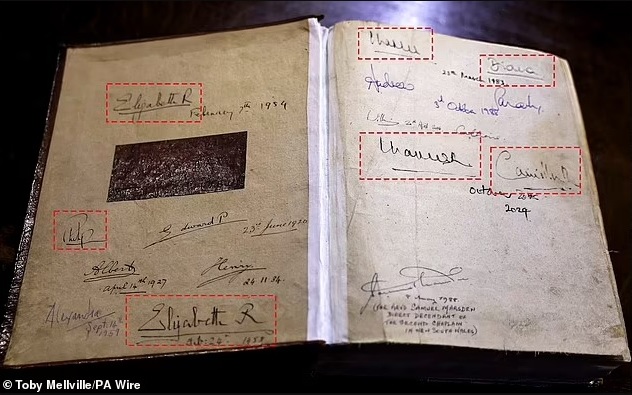 Elizabeth R
February 7th 1954
Philip
Edward P
Albert
April 14th 1927
Henry
24.11.34.
Alexandra
Sept. 14th
1959
Elizabeth R
Charles
Diana
28th March 1983
Andrew
3rd October 1988
Charles R
Camilla R
October 20th
2024
(THE REVD SAMUEL MARSDEN
DIRECT DEFENDANT OF
THE SECOND CHAPLAIN
IN NEW SOUTH WALES)
© Toby Mellville/PA Wire